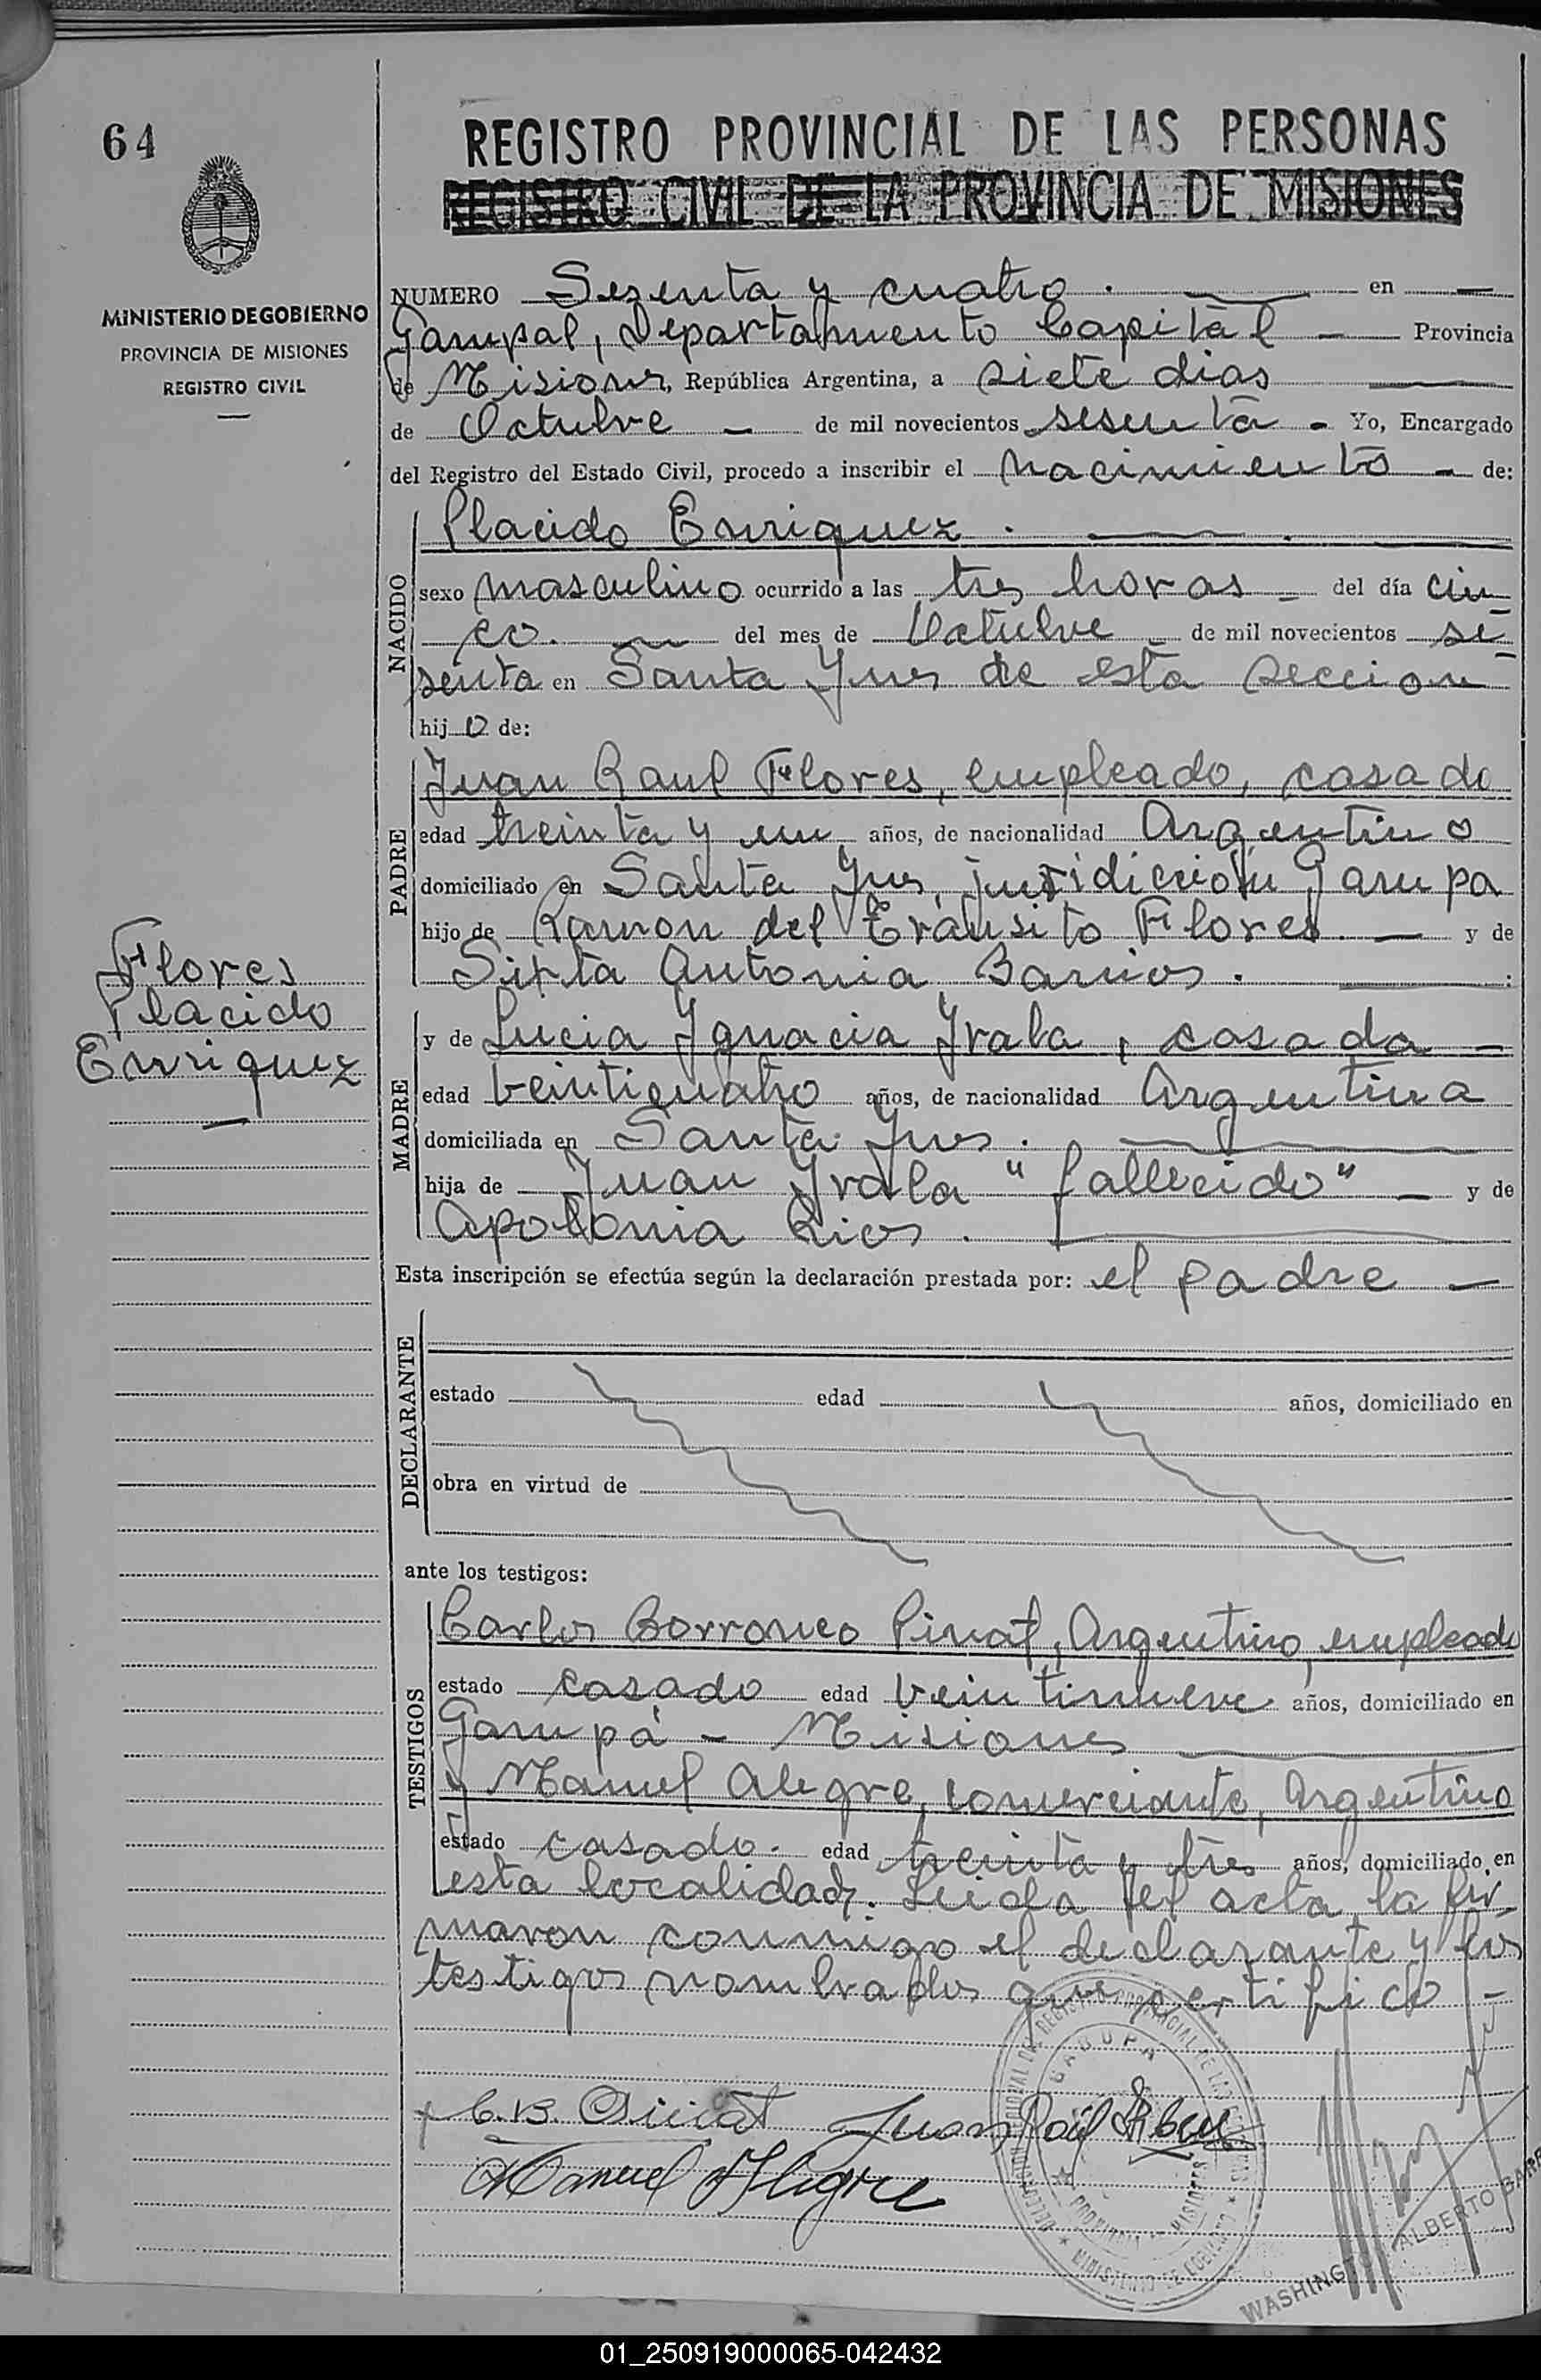 64
REGISTRO PROVINCIAL DE LAS PERSONAS
REGISTRO CIVIL DE LA PROVINCIA DE MISIONES
MINISTERIO DE GOBIERNO
PROVINCIA DE MISIONES
REGISTRO CIVIL
NUMERO Sesenta y cuatro . en
Departamento Capital Provincia
de Misiones, República Argentina, a siete dias
de Octubre de mil novecientos sesenta - Yo, Encargado
del Registro del Estado Civil, procedo a inscribir el nacimiento - de:
Placido Enriquez .
NACIDO
sexo masculino ocurrido a las tres horas - del día cin-
co. del mes de Octubre de mil novecientos se-
senta en Santa Ynes de esta seccion
hij o de:
PADRE
Juan Raul Flores, empleado, casado
edad treinta y un años, de nacionalidad Argentino
domiciliado en Santa Ynes, juridiccion Garupa
hijo de Ramon del Transito Flores. y de
Sixta Antonia Barrios.
Flores
Placido
Enriquez
MADRE
y de Lucia Ygnacia Yrala, casada -
edad veinticuatro años, de nacionalidad Argentina
domiciliada en Santa Ynes.
hija de Juan Yrala "fallecido" - y de
Apolonia Rios.
Esta inscripción se efectúa según la declaración prestada por: el padre -
DECLARANTE
estado edad años, domiciliado en
obra en virtud de
ante los testigos:
TESTIGOS
Carlos Borromeo Pinat, Argentino, empleado
estado casado edad veintinueve años, domiciliado en
Garupá - Misiones
y Manuel Alegre, comerciante, Argentino
estado casado. edad treinta y tres años, domiciliado en
esta localidad. Leida el acta, la fir-
maron conmigo el declarante y los
testigos nombrados que certifico -
GARUPA
PROVINCIA DE MISIONES
MINISTERIO DE GOBIERNO
C.B. Pinat Juan Raúl
Manuel Alegre
WASHINGTON ALBERTO
01_250919000065-042432